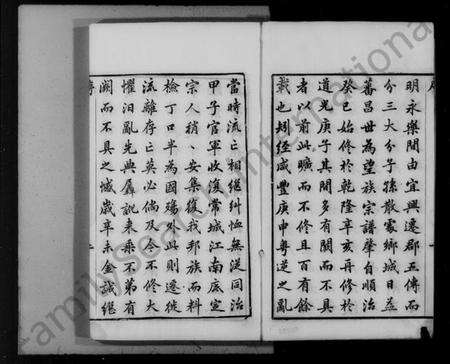 明永樂間由宜興遷郡五傳而
分三大分子孫散蒙鄉城日益
蕃昌世為望族宗譜肇自順治
癸巳始修於乾隆辛亥再修於
道光庚子其間多有闕而不具
者以前此曠而不修且百有餘
載也矧經咸豐庚申粵逆之亂
當時流亡相繼糾恤無從同治
甲子官軍收復常城江南底定
宗人稍安集復我邦族而料
檢丁口半為國殤則此則遷徙
流離存亡莫必倘及今不修大
懼汩亂先典貽譏來乘不弟有
闕而不具之憾歲辛未金誠繼
FamilySearch International